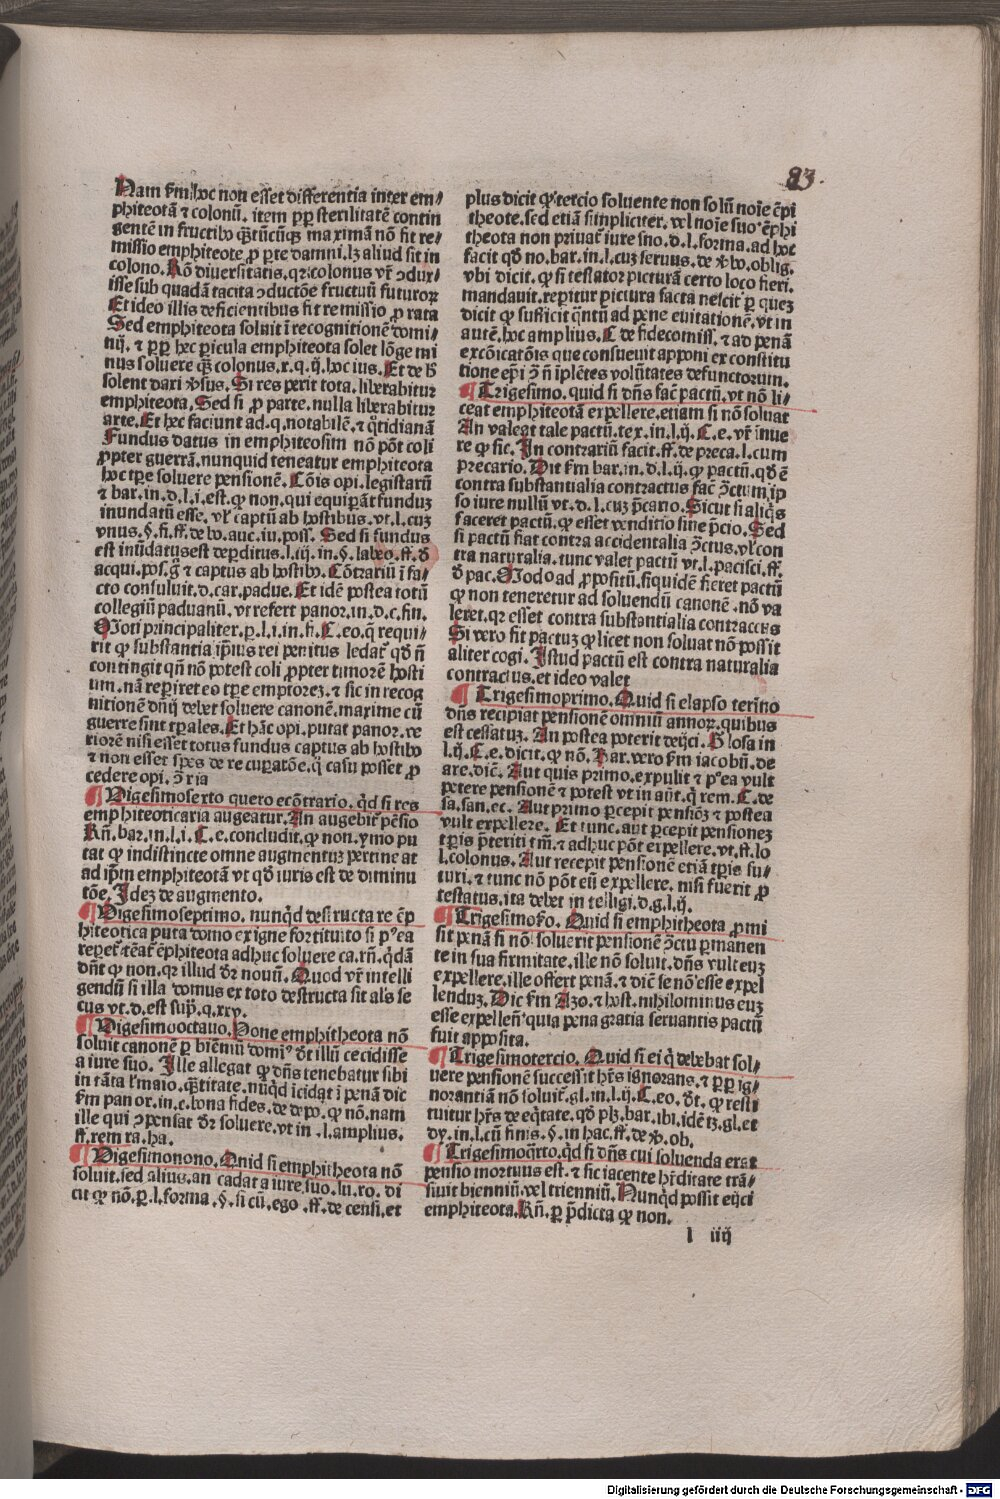 83.
Nam ẜm hoc non esset differentia inter em⸗
phiteotã ⁊ colonũ. item ꝓpꝑ sterilitatẽ contin
gentẽ in fructibꝰ qͣ̃tũcũqꝫ maximã nõ fit re⸗
missio emphiteote ꝓ ꝑte damni. lꝫ aliud sit in
colono. Rõ diuersitatis. qꝛ colonus vr̃ ↄdux⸗
isse sub quadã tacita ↄductõe fructuũ futuroꝝ
Et ideo illis deficientibus fit remissio ꝓ rata
Sed emphiteota soluit ĩ recognitionẽ domi⸗
nij. ⁊ ꝓpꝑ hec ꝑicula emphiteota solet lõge mi
nus soluere qͣ̃ colonus. x. q. ij. hoc ius. Et de b̃
solent dari ꝟsus. Si res perit tota. liberabitur
emphiteota. Sed si ꝓ parte. nulla liberabitur
arte. Et hec faciunt ad. q. notabilẽ. ⁊ q̃tidianã
Fundus datus in emphiteosim nõ põt coli
ꝓpter guerrã. nunquid teneatur emphiteota
hoc tꝑe soluere pensionẽ. Cõis opi. legistarũ
⁊ bar. in. d. l. i. est. ꝙ non. qui equiparãt fundum
inundatũ esse. vł captũ ab hostibus. vt. l. cuꝫ
vnus. §. fi. ff. de bo. auc. iu. poss. Sed si fundus
est inũdatus est deꝑditus. l. iij. in. §. labeo. ff. đ
acqui. pos. g̃ ⁊ captus ab hostibꝰ. Cõtrariũ ĩ fa⸗
cto consuluit. d. car. padue. Et idẽ postea totũ
collegiũ paduanũ. vt refert panor. in. d. c. fin.
Moti principaliter. ꝑ. l. i. in. fi. C. eo. q̃ requi⸗
rit ꝙ substantia ip̃ius rei penitus ledat̃ qđ ñ
contingit qñ nõ potest coli ꝓpter timorẽ hosti
um. nã reꝑiret eo tꝑe emptoreꝫ. ⁊ sic in recog
nitionẽ dñij debet soluere canonẽ. maxime cũ
guerre sint tꝑales. Et hãc opi. putat panor. ve
riorẽ nisi esset totus fundus captus ab hostibꝰ
⁊ non esset spes de recuꝑatõe. q̃ casu posset ꝓ
cedere opi. ↄ̃ria
¶ Vigesimosexto quero ecõtrario. qͥd si res
emphiteoticaria augeatur. An augebit̃ pẽsio
Rñ. bar. in. l. i. C. e. concludit. ꝙ non. ymo pu
tat ꝙ indistincte omne augmentuꝫ pertineat
ad ip̃m emphiteotã vt qđ iuris est de diminu
tõe. Idem de augmento.
¶ Vigesimoseptimo. nunqͥd destructa re ẽp
hiteotica puta domo ex igne fortituito si pꝰea
repet̃ teneat̃ ẽphiteota adhuc soluere ca. rñ. qͥdã
dñt ꝙ non. qꝛ illud dr̃ nouũ. Quod vr̃ intelli
gendũ si illa domus ex toto destructa sit als se
cus vt. d. est sup̃. q. xxv.
¶ Vigesimooctauo. Pone emphitheota nõ
soluit canonẽ ꝑ biẽniũ domiꝰ đt illũ cecidisse
a iure suo. Ille allegat ꝙ dñs tenebatur sibi
in tãta ł maio. qͣ̃titate. nũqͥd ĩcidat ĩ penã dic
ẜm panor. in. c. bona fides. de depo. ꝙ nõ. nam
ille qui ↄpensat dr̃ soluere. vt in .l. amplius.
ff. rem ra. ha.
¶ Vigesimonono. Quid si emphitheota nõ
soluit. sed alius. an cadat a iure suo. lu. ro. di
cit ꝙ nõ. ꝑ. l. forma. §. si cũ. ego. ff. de censi. et
plus dicit ꝙ tercio soluente non solũ noĩe ẽpi
theote. sed etiã simpliciter. vel noĩe suo ẽphi
theota non priuat̃ iure suo. d. l. forma. ad hoc
facit qđ no. bar. in. l. cuꝫ seruus. de ꝟbo. oblig.
vbi dicit. ꝙ si testator picturã certo loco fieri.
mandauit. reperitur pictura facta nescit ꝑ queꝫ
dicit ꝙ sufficit q̃ntũ ad pene euitationẽ. vt in
autẽ. hoc amplius. C de fidecomiss. ⁊ ad penã
excõicatõis que consueuit apponi ex constitu
tione ep̃i ↄ̃ ñ ĩplẽtes volũtates defunctorum.
¶ Trigesimo. quid si dñs fac̃ pactũ. vt nõ li⸗
ceat emphiteotã expellere. etiam si nõ soluat
An valeat tale pactũ. tex. in. l. ij. C. e. vr̃ inue
re ꝙ sic. In contrariũ facit. ff. de preca. l. cum
precario. Dic ẜm bar. in. d. l. ij. ꝙ pactũ. qđ ẽ
contra substantialia contractus fac̃ ↄ̃ctum ip
so iure nullũ vt. d. l. cuꝫ p̃cario. Sicut si aliqͥs
faceret pactũ. ꝙ esset venditio sine p̃cio. Sed
si pactũ fiat contra accidentalia ↄ̃ctus. vł con
tra naturalia. tunc valet pactũ vt. l. pacisci. ff.
đ pac. Modo ad ꝓpositũ. siquidẽ fieret pactũ
ꝙ non teneretur ad soluendũ canonẽ. nõ va
leret. qꝛ esset contra substantialia contractus
Si vero fit pactuꝫ ꝙ licet non soluat nõ possit
aliter cogi. Istud pactũ est contra naturalia
contractus. et ideo valet
¶ Trigesimoprimo. Quid si elapso term̃o
dñs recipiat pensionẽ omniũ annoꝝ. quibus
est cessatuꝫ. An postea poterit deijci. Glosa in
l. ij. C. e. dicit. ꝙ nõ. Bar. vero ẜm iacobũ. de
are. dic̃. Aut quis primo. expulit ⁊ pꝰea vult
petere pensionẽ ⁊ potest vt in aut̃. q̃ rem. C. de
sa. san. ec. Aut primo ꝑcepit pensioẽꝫ ⁊ postea
vult expellere. Et tunc. aut ꝑcepit pensionez
tꝑis p̃teriti tm̃. ⁊ adhuc põt expellere. vt. ff. lo
l. colonus. Aut recepit pensionẽ etiã tꝑis fu⸗
turi. ⁊ tunc nõ põt eũ expellere. nisi fuerit ꝓ
testatus. ita debet intelligi. d. g. l. ij.
¶ Trigesimoscđo. Quid si emphitheota ꝓmi
sit penã si nõ soluerit pensionẽ ↄ̃ctu ꝑmanen
te in sua firmitate. ille nõ soluit. dñs vult euꝫ
expellere. ille offert penã. ⁊ dic̃ se nõ esse expel
lenduꝫ. Dic ẜm Azo. ⁊ host. nihilominus euꝫ
esse expellen̄ quia pena gratia seruantis pactũ
fuit apposita.
¶ Trigesimotercio. Quid si ei q̃ debebat sol⸗
uere pensionẽ successit hr̃s ignorans. ⁊ ꝓpꝑ ig⸗
norantiã nõ soluit. gl. in. l. ij. C. eo. đt. ꝙ resti
tuitur hr̃s de eqͥtate. qđ ph̃. bar. ibi. idẽ tꝫ. gl. et
dy. in. l. cũ finis. §. in hac. ff. de ꝟ. ob.
¶ Trigesimoqͣrto. qͥd si dñs cui soluenda erat
pensio mortuus est. ⁊ sic iacente hr̃ditate trã⸗
siuit bienniũ. vel trienniũ. Nunqͥd possit eijci
emphiteota. Rñ. ꝑ p̃dicta ꝙ non.
l iiij
Digitalisierung gefördert durch die Deutsche Forschungsgemeinschaft - DFG